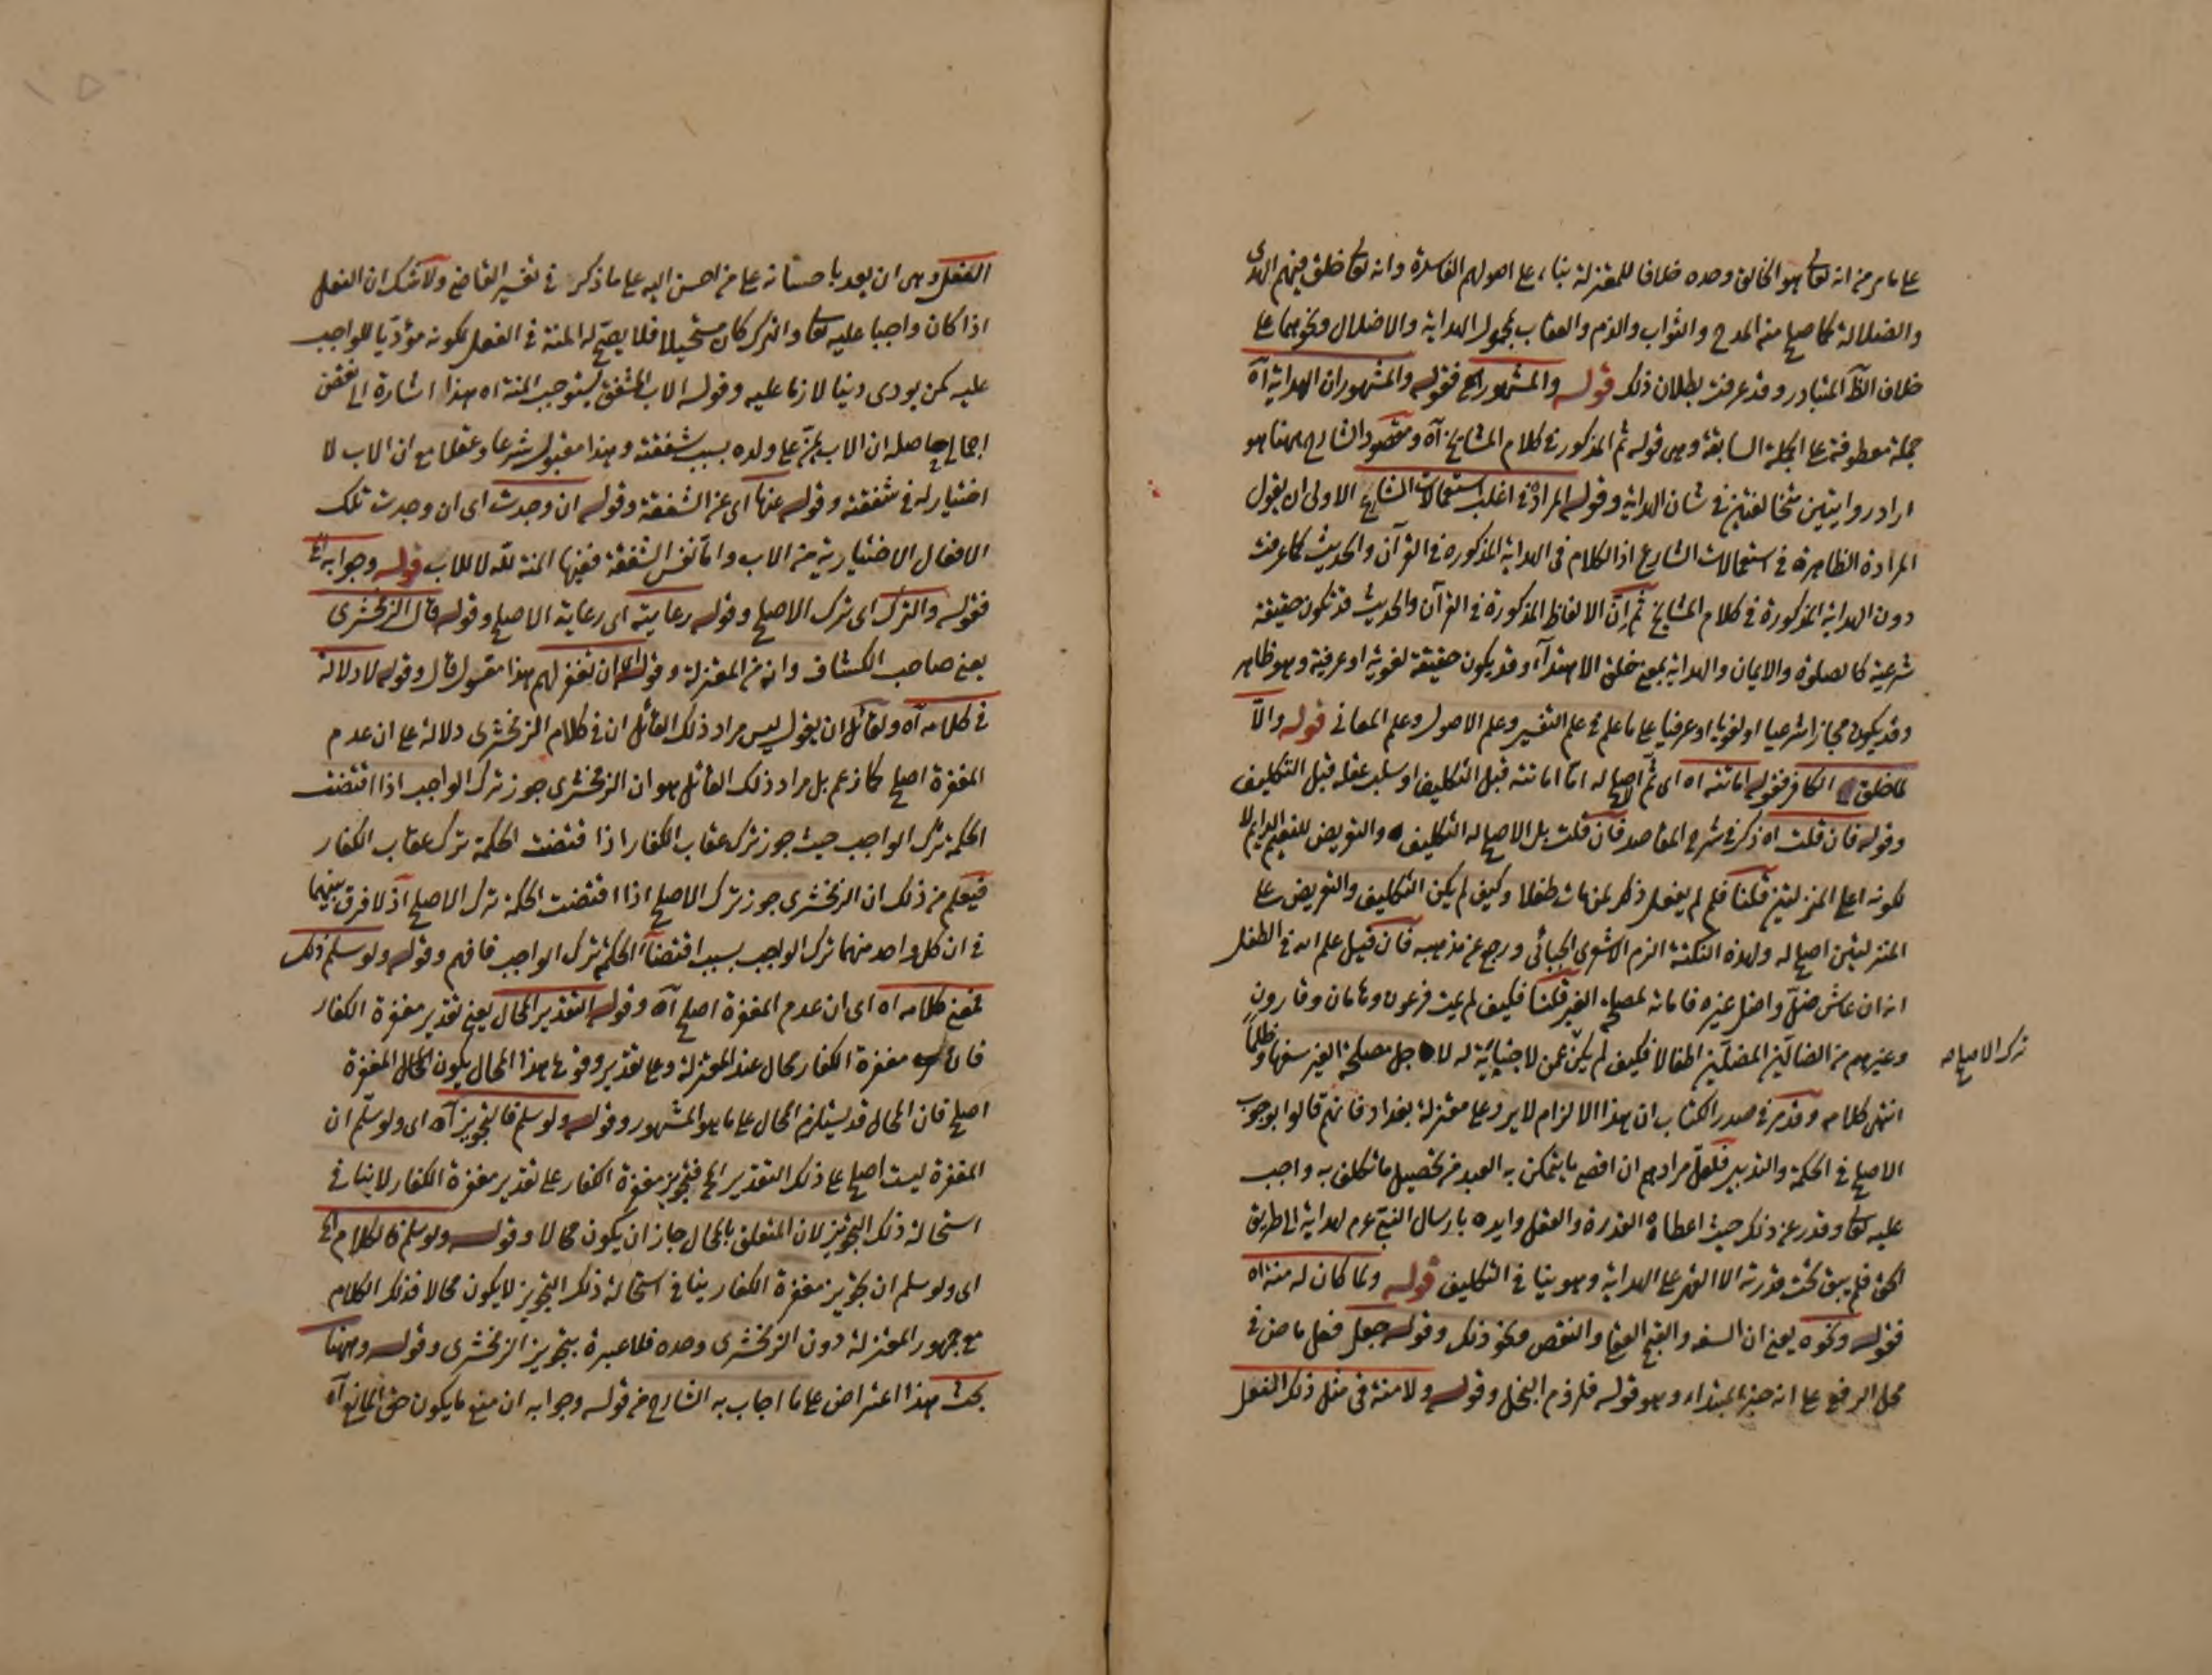 على ما مر من انه تعالى هو الخالق وحده خلافا للمعتزلة بناء على اصولهم الفاسدة وانه تعالى خلق فيهم الهدى
والضلالة كما صح منه المدح والثواب والذم والعقاب فحمل الهداية والاضلال ونحوهما على
خلاف الظ المتبادر وقد عرفت بطلان ذلك قوله والمشهور الخ فقوله والمشهور ان الهداية آه
جملة معطوفة على الجملة السابقة وهى قوله ثم المذكور فى كلام المشايخ آه ومقصود الشارح ههنا هو
ايراد روايتين متخالفتين فى شان الهداية وقوله المرادة فى اغلب استعمالات الشارع الاولى ان يقول
المرادة الظاهرة فى استعمالات الشارع اذ الكلام فى الهداية المذكورة فى القرآن والحديث كما عرفت
دون الهداية المذكورة فى كلام المشايخ ثم ان الالفاظ المذكورة فى القرآن والحديث قد تكون حقيقة
شرعية كالصلوة والايمان والهداية بمعنى خلق الاهتداء وقد يكون حقيقة لغوية او عرفية وهو ظاهر
وقد يكون مجازا شرعيا او لغويا او عرفيا على ما علم فى علم التفسير وعلم الاصول وعلم المعانى قوله والا
لما خلق الكافر فقوله اماتته اه اى ثم الاصلح له اما اماتته قبل التكليف او سلب عقله قبل التكليف
وقوله فان قلت اه ذكر فى شرح المقاصد فان قلت بل الاصلح له التكليف والتعريض للنعيم الدايم لا
لكونه اعلى المنزلتين قلنا فلم لم يفعل ذكر بمن مات طفلا وكيف لم يكن التكليف والتعريض على
المنزلتين اصلح له ولهذه النكتة الزم الاشعرى الجبائى ورجع عن مذهبه فان قيل علم الله فى الطفل
انه ان عاش ضل واضل غيره فاماته لمصلحة الغير قلنا فكيف لم يمت فرعون وهامان وقارون
وغيرهم من الضالين المضلين اطفالا فكيف لم يكن عمن لا جناية له لاجل مصلحة الغير سفها وظلما
ترك الاصلح له
انتهى كلامه وقد مر فى صدر الكتاب ان هذا الالزام لا يرد على معتزلة بغداد فانهم قالوا بوجوب
الاصلح فى الحكمة والتدبير فلعل مرادهم ان اقصى ما يتمكن به العبد من تحصيل ما تكلف به واجب
عليه تعالى وقدر عن ذلك حيث اعطاه القدرة والعقل وايده بارسال النبى عم لهداية الى طريق
الحق فلم يبق تحت قدرته الا القهر على الهداية وهو ينافى التكليف قوله ولما كان له منة اه
فقوله ونحوه يعنى ان السفه والقبح العقلى والنقص ونحو ذلك وقوله جعل فعل ماض فى
محل الرفع على انه خبر المبتداء وهو قوله فلزوم البخل وقوله ولا منة فى مثل ذلك الفعل
الفعل وهى ان يعد باحسانه على من احسن اليه على ما ذكر فى تفسير القاضى ولا شك ان الفعل
اذا كان واجبا عليه تعالى والترك كان مستحيلا فلا يصح له المنة فى الفعل لكونه مؤديا للواجب
عليه كمن يودى دينا لازما عليه وقوله الاب المشفق يستوجب المنة اه هذا اشارة الى نقض
اجمالى حاصله ان الاب يمن على ولده بسبب شفقته وهذا مقبول شرعا وعقلا مع ان الاب لا
اختيار له فى شفقته وقوله عنها اى عن الشفقة وقوله ان وجدت اى ان وجدت تلك
الافعال الاختيارية من الاب واما نفس الشفقة ففيها المنة لله لا للاب قوله وجوابه الخ
فقوله والترك اى ترك الاصلح وقوله رعايته اى رعاية الاصلح وقوله قال الزمخشرى
يعنى صاحب الكشاف وانه من المعتزلة وقوله ان تغفر لهم هذا مقول قال وقوله لا دلالة
فى كلامه آه ولقائل ان يقول ليس مراد ذلك القائل ان فى كلام الزمخشرى دلالة على ان عدم
المغفرة اصلح كما زعم بل مراد ذلك القائل هو ان الزمخشرى جوز ترك الواجب اذا اقتضت
الحكمة ترك الواجب حيث جوز ترك عقاب الكفار اذا اقتضت الحكمة ترك عقاب الكفار
فيعلم من ذلك ان الزمخشرى جوز ترك الاصلح اذا اقتضت الحكمة ترك الاصلح اذ لا فرق بينهما
فى ان كل واحد منهما ترك الواجب بسبب اقتضاء الحكمة ترك الواجب فافهم وقوله ولو سلم ذلك
فمعنى كلامه اه اى ان عدم المغفرة اصلح آه وقوله التقدير المحال يعنى تقدير مغفرة الكفار
فان مغفرة الكفار محال عند المعتزلة وعلى تقدير وقوع هذا المحال يكون المحال المغفرة
اصلح فان المحال قد يستلزم المحال على ما هو المشهور وقوله ولو سلم فالتجويز آه اى ولو سلم ان
المغفرة ليست اصلح على ذلك التقدير الخ فتجويز مغفرة الكفار على تقدير مغفرة الكفار لا ينافى
استحالة ذلك التجويز لان المتعلق بالمحال جاز ان يكون محالا وقوله ولو سلم فالكلام الخ
اى ولو سلم ان تجويز مغفرة الكفار ينافى استحالة ذلك التجويز لا يكون محالا فذلك الكلام
مع جمهور المعتزلة دون الزمخشرى وحده فلا عبرة بتجويز الزمخشرى وقوله وههنا
بحث هذا اعتراض على ما اجاب به الشارح من قوله وجوابه ان منع ما يكون حق المانع آه